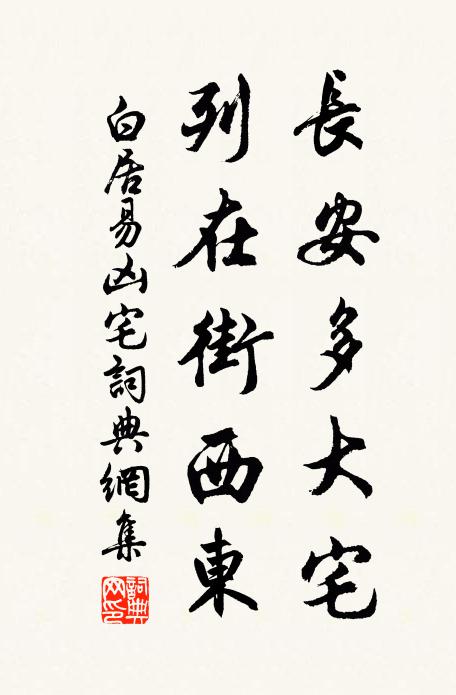 長安多大宅
列在街西東
白居易凶宅詞典網集
詞典網印